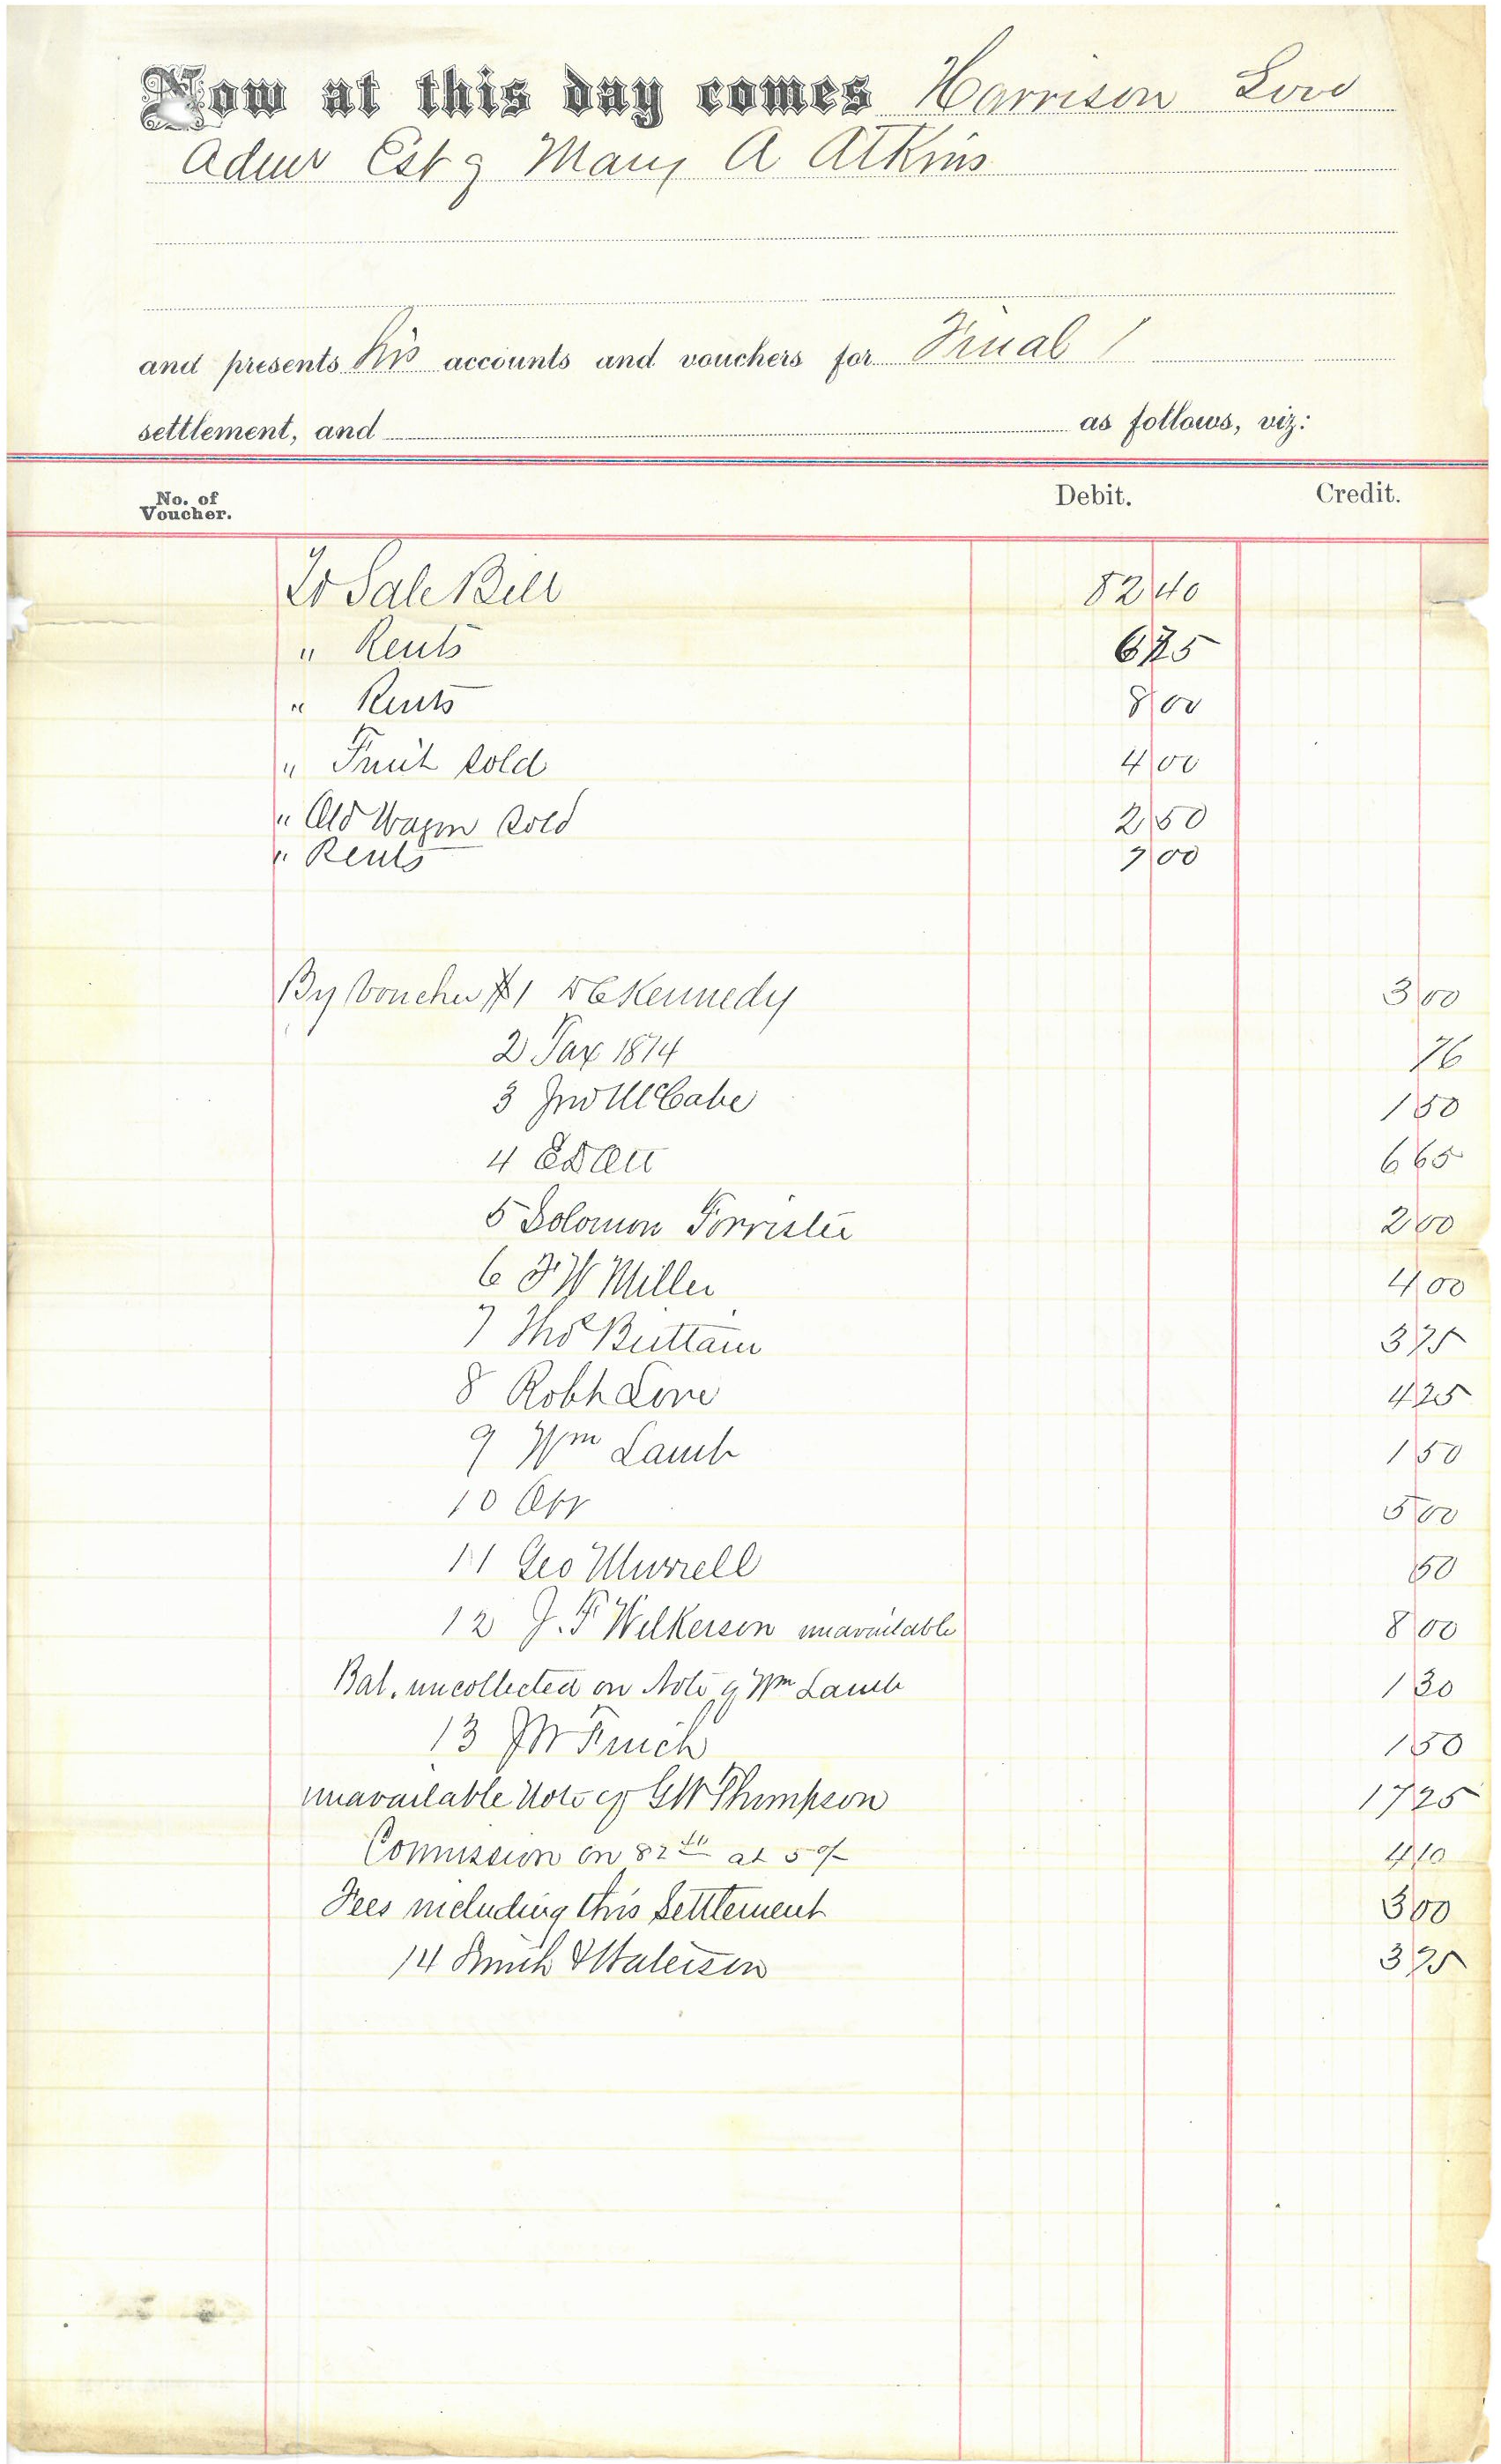 Now at this day comes Harrison Love
Admr Est of Mary A Atkins
and presents his accounts and vouchers for Final
settlement, and as follows, viz:
No. of Voucher. Debit. Credit.
To Sale Bill 82 40
" Rents 6 75
" Rents 8 00
" Fruit sold 4 00
" Old Wagon sold 2 50
" Rents 7 00
By Voucher #1 Kennedy 3 00
2 Tax 1874 76
3 Jno McCabe 1 50
4 3 6 65
5 Solomon Forrister 2 00
6 F W Miller 4 00
7 Thos Brittain 3 75
8 Robt Love 4 25
9 Wm Lamb 1 50
10 5 00
11 Geo Murrell 50
12 J. F Wilkerson unavailable 8 00
Bal. uncollected on Note of Wm Lamb 1 30
13 French 1 50
unavailable Note of GW Thompson 17 25
Commission on 82 40 at 5 % 4 10
Fees including this Settlement 3 00
14 Smith & 3 75